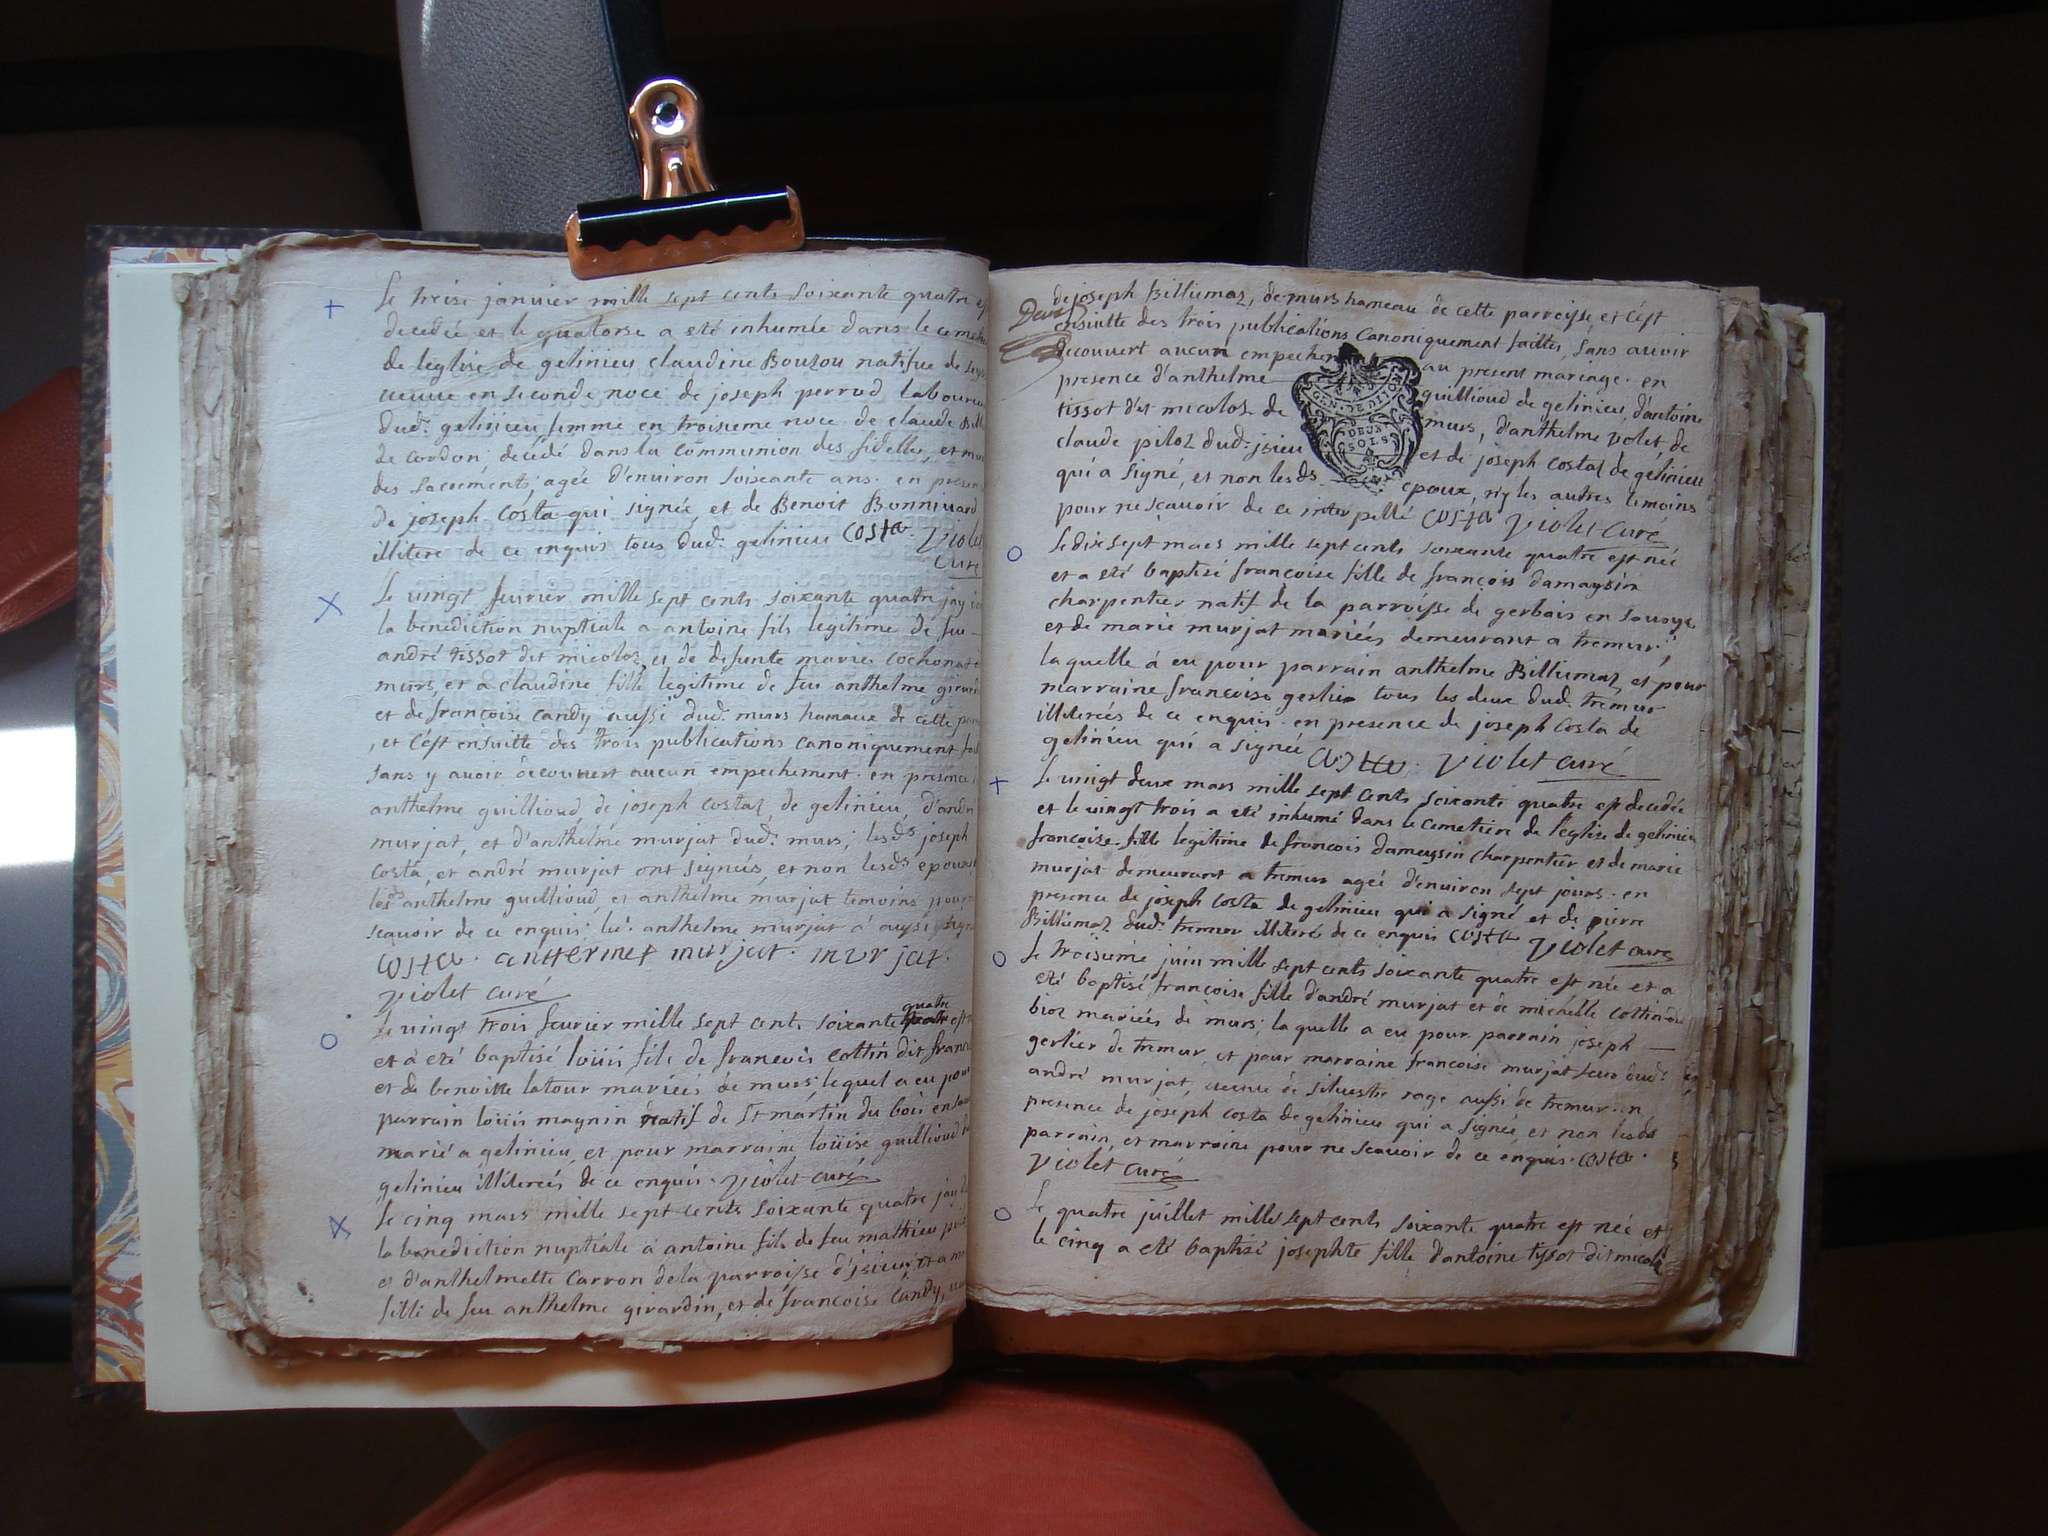 Le treise janvier mille sept cents soixante quatre
decedée et le quatorse a eté inhumée dans le
de leglise de gelinieu claudine Bouzou natifue de
ueuue en seconde noce de joseph perrod laboureur
dud: gelinieu femme en troisieme noce de claude
de cordon; decédé dans la communion des fidelles, et
des sacrements; ageé d'environ soixante ans. en
de joseph Costa qui signée, et de Benoit Bonniuard
illiteré de ce enquis tous dud: gelinieu Costa. Violet
Curé
Le uingt feurier mille sept cents soixante quatre jay
la benediction nuptiale a antoine fils legitime de feu
andré tissot dit micoloz, et de defunte marie cochonat
murs, et a claudine fille legitime de feu anthelme
et de françoise candy aussi dud: murs hamaux de cette
, et cést ensuitte des trois publications canoniquement
sans y auoir decouuert aucun empechement. en presence
anthelme guillioud, de joseph costaz, de gelinieu, d'andré
murjat, et d'anthelme murjat dud: murs; lesds joseph
costa, et andré murjat ont signés, et non lesds epoux
lesds anthelme guillioud, et anthelme murjat temoins, pour
scauoir de ce enquis. anthelme murjat à aussi
costa. anthermet murjat. murjat.
violet curé
Le uingt trois feurier mille sept cents soixante quatre
et à eté baptisé loüis fils de francois cottin dit
et de benoitte latour mariées de murs; lequel a eu pour
parrain loüis maynin natif de St martin du bois en
marié a gelinieu, et pour marraine loüise guillioud
gelinieu illitereés de ce enquis. violet curé
Le cinq mars mille sept cents soixante quatre jay
la benediction nuptiale à antoine fils de feu mathieu
et d'anthelmette Carron de la parroisse d'jsieu,
fille de feu anthelme girardin, et de françoise Candy,
de joseph Billiumaz, de murs hameau de cette parroisse et cést
ensuitte des trois publications canoniquement faittes, sans auoir
decouuert aucun au present mariage. en
presence d'anthelme guillioud de gelinieu, d'antoine
tissot dit micoloz de murs, d'anthelme volet, de
claude piloz dud: jsieu et de joseph costaz de gelinieu
qui a signé, et non lesds epoux, ny les autres temoins
pour ne scauoir de ce interpellé costa violet curé
GEN. DE DIJON
DEUX
SOLS
Le dix sept mars mille sept cents soixante quatre est née
et a eté baptisé françoise fille de françois damaysin
charpentier natif de la parroisse de gerbais en sauoye
et de marie murjat mariées demeurant a tremur;
laquelle à eu pour parrain anthelme Billiumaz, et pour
marraine françoise gerlier tous les deux dud: tremur
illitereés de ce enquis. en presence de joseph costa de
gelinieu qui a signée costa. violet curé
Le uingt deux mars mille sept cents soixante quatre est decedée
et le uingt trois a eté inhumé dans le cemetiere de l'eglise de gelinieu
françoise fille legitime de françois dameysin charpentier et de marie
murjat demeurant a tremur ageé d'enuiron sept jours. en
presence de joseph costa de gelinieu qui a signé et de pierre
Billiumaz dud: tremur illiteré de ce enquis costa violet curé
Le troisieme juin mille sept cents soixante quatre est née et a
eté baptisé françoise fille d'andré murjat et de michelle cottin
bioz mariées de murs; la quelle a eu pour parrain joseph
gerlier de tremur, et pour marraine françoise murjat seur dud:
andré murjat, ueuue de siluestre roge aussi de tremur. en
presence de joseph costa de gelinieu qui a signée, et non lesds
parrain, et marraine pour ne scauoir de ce enquis. costa.
violet curé
Le quatre juillet mille sept cents soixante quatre est née et
le cinq a eté baptisé josephte fille d'antoine tissot dit micoloz